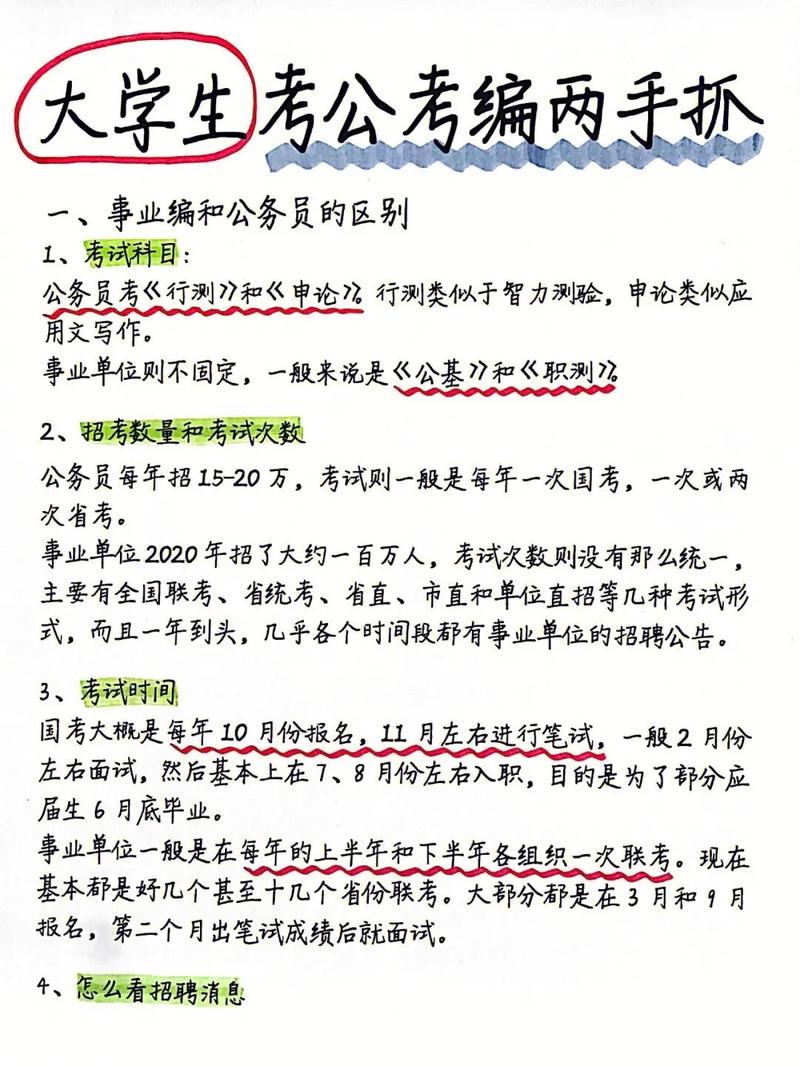 大学生考公考编两手抓
一、事业编和公务员的区别
1、考试科目：
公务员考《行测》和《申论》。行测类似于智力测验，申论类似应
用文写作。
事业单位则不固定，一般来说是《公基》和《职测》。
2、招考数量和考试次数
公务员每年招15-20万，考试则一般是每年一次国考，一次或两
次省考。
事业单位2020年招了大约一百万人，考试次数则没有那么统一，
主要有全国联考、省统考、省直、市直和单位直招等几种考试形
式，而且一年到头，几乎各个时间段都有事业单位的招聘公告。
3、考试时间
国考大概是每年10月份报名，11月左右进行笔试，一般2月份
左右面试，然后基本上在7、8月份左右入职，目的是为了部分应
届生6月底毕业。
事业单位一般是在每年的上半年和下半年各组织一次联考。现在
基本都是好几个甚至十几个省份联考。大部分都是在3月和9月
报名，第二个月出笔试成绩后就面试。
4、怎么看招聘消息